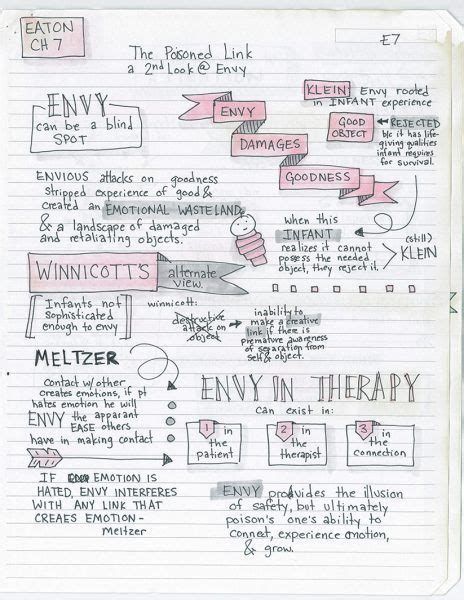 EATON
CH 7
E7
The Poisoned Link
a 2nd Look @ Envy
ENVY
can be a blind
SPOT
ENVY
DAMAGES
GOODNESS
KLEIN Envy rooted
in INFANT experience
GOOD
OBJECT
REJECTED
b/c it has life-
giving qualities
infant requires
for survival.
ENVIOUS attacks on goodness
stripped experience of good &
created an EMOTIONAL WASTELAND
& a landscape of damaged
and retaliating objects.
When this
INFANT
realizes it cannot
possess the needed
object, they reject it.
(still)
KLEIN
WINNICOTT'S
alternate
view.
Infants not
Sophisticated
enough to envy
winnicott:
destructive
attack on
object
inability to
make a creative
link if there is
premature awareness
of separation from
self & object.
MELTZER
Contact w/other
creates emotions, if pt
hates emotion he will
ENVY the apparant
EASE others
have in making contact
IF EMOTION IS
HATED, ENVY INTERFERES
WITH ANY LINK THAT
CREAES EMOTION-
Meltzer
ENVY IN THERAPY
can exist in:
1 in
the
patient
2 in
the
therapist
3 in
the
connection
ENVY provides the illusion
of safety, but ultimately
poison's one's ability to
connect, experience emotion,
& grow.